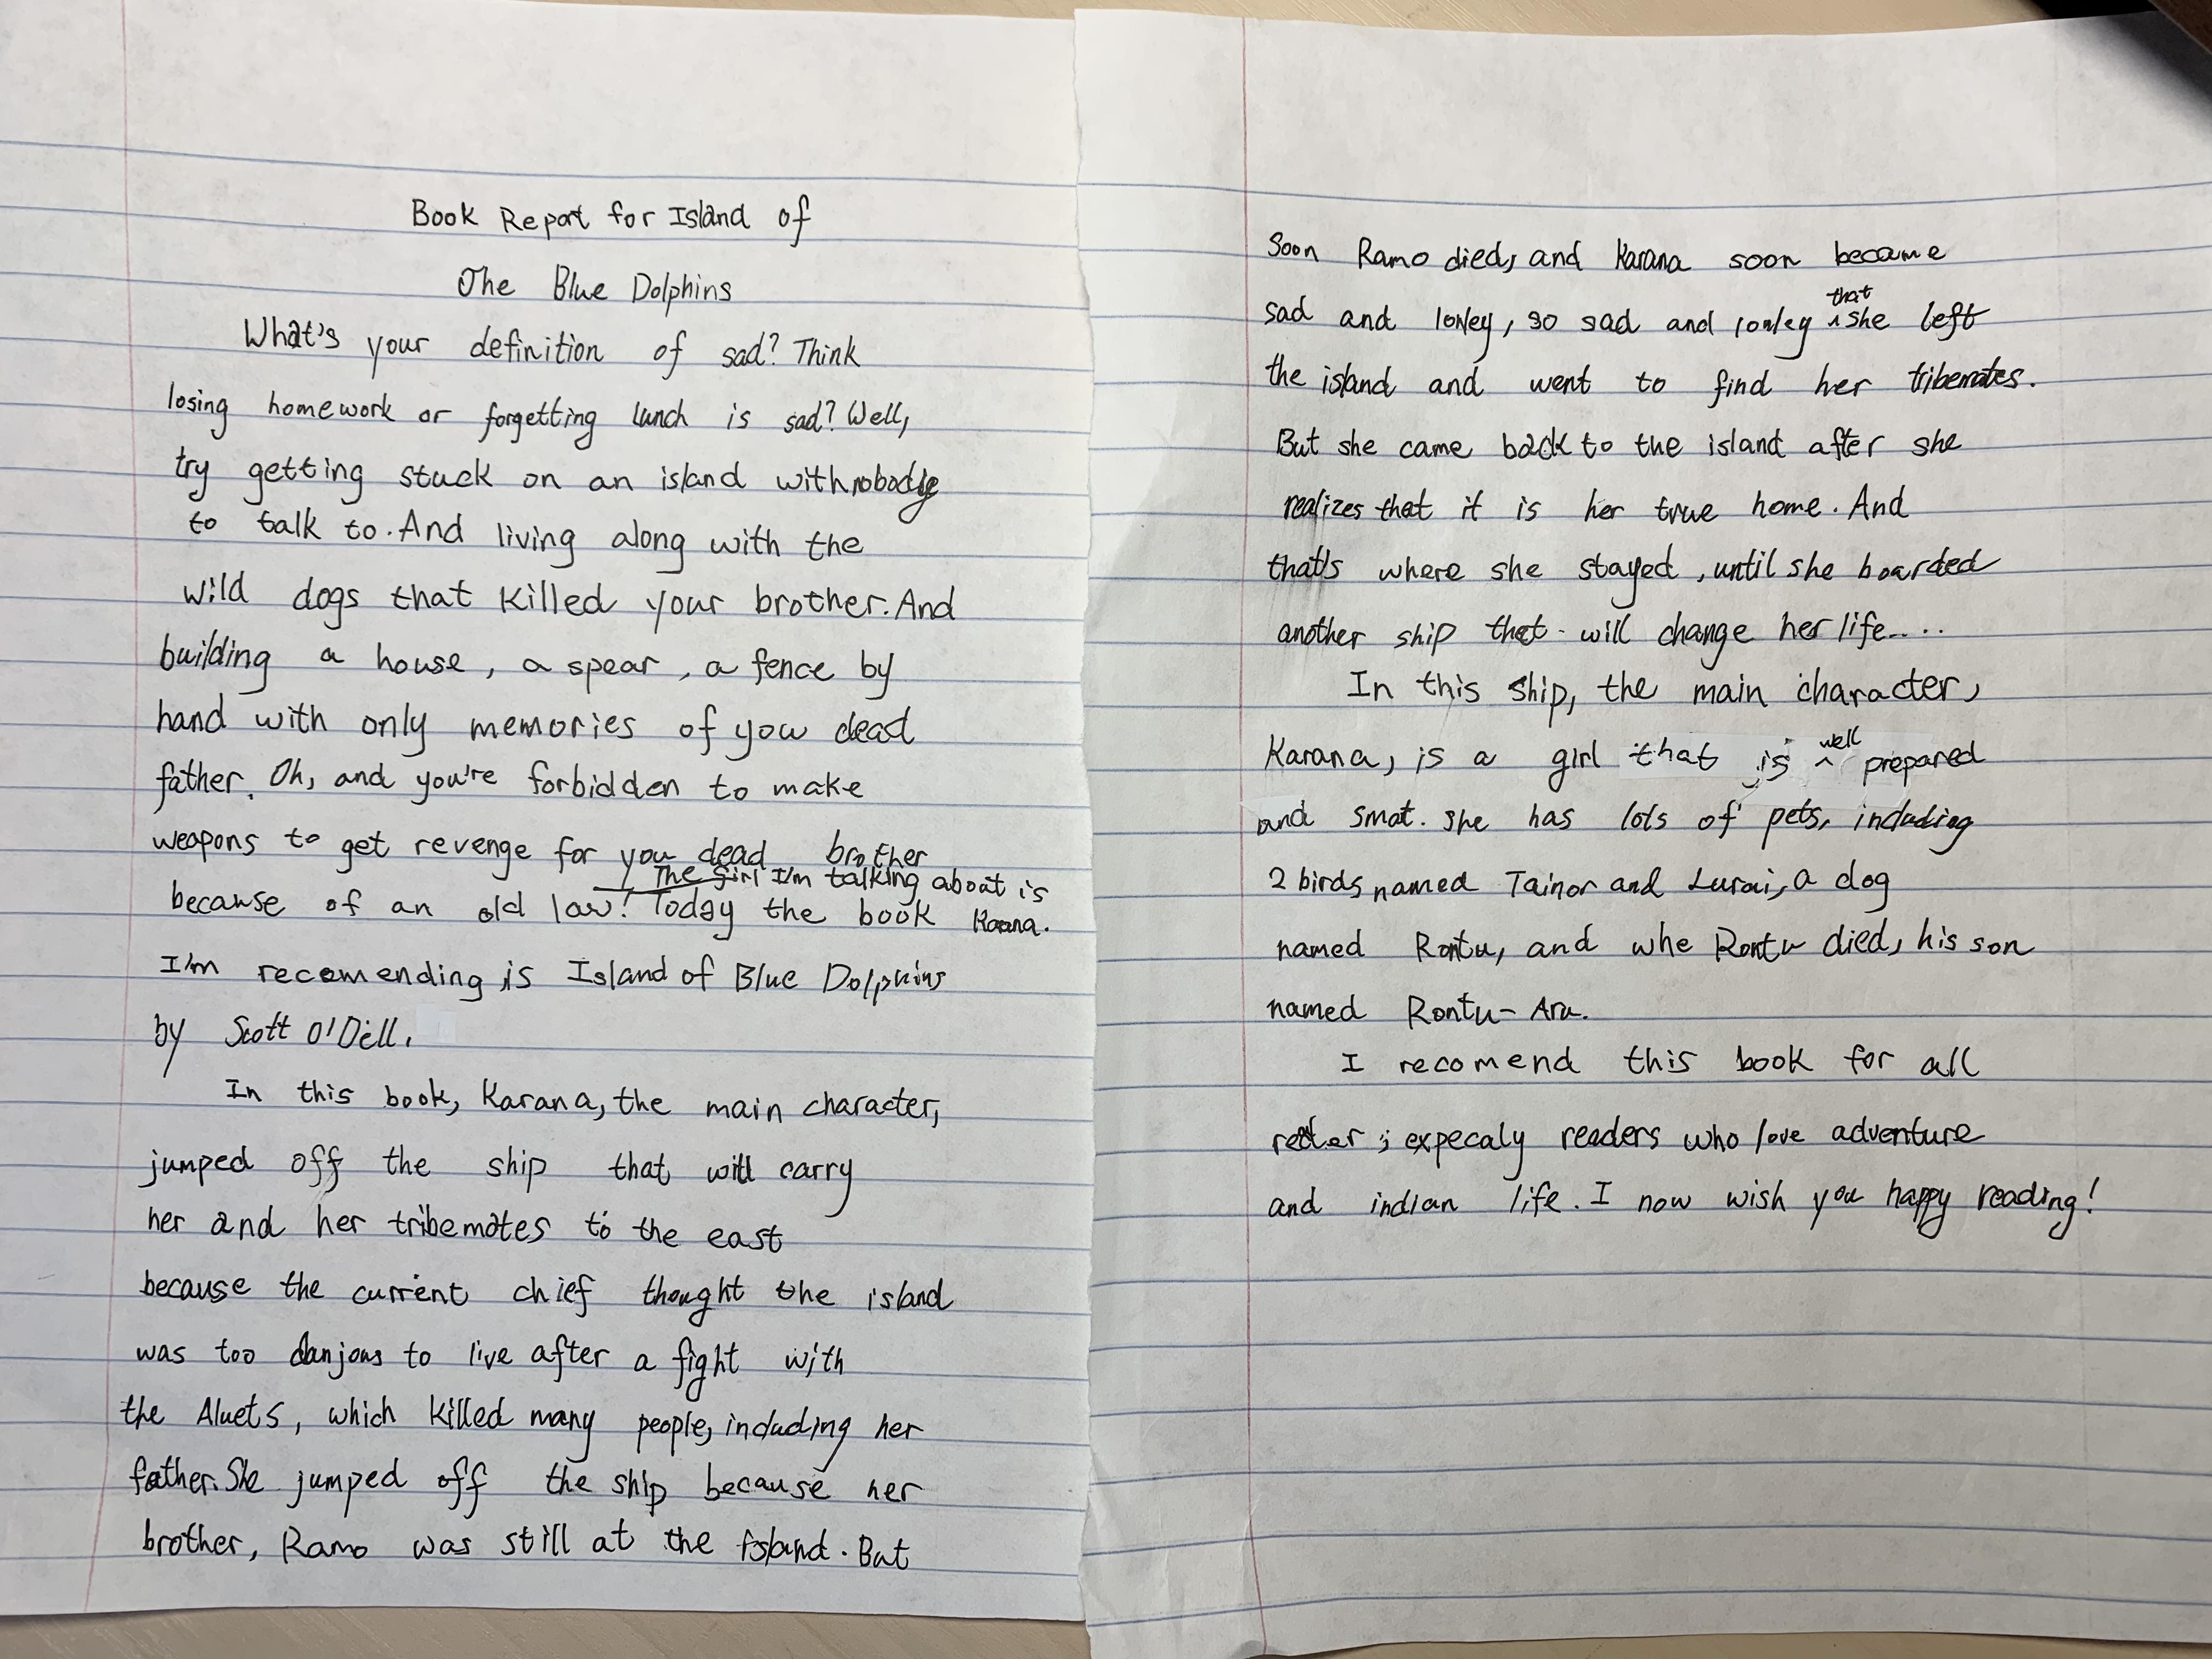 Book Report for Island of
The Blue Dolphins
What's your definition of sad? Think
losing homework or forgetting lunch is sad? Well,
try getting stuck on an island with nobody
to talk to. And living along with the
wild dogs that killed your brother. And
building a house, a spear, a fence by
hand with only memories of you dead
father. Oh, and you're forbidden to make
weapons to get revenge for you dead brother
The girl I'm talking about is
because of an old law! Today the book Karana.
I'm recomending is Island of Blue Dolphins
by Scott O'Dell.
In this book, Karana, the main character,
jumped off the ship that will carry
her and her tribemates to the east
because the current chief thought the island
was too danjous to live after a fight with
the Aluets, which killed many people, including her
father. She jumped off the ship because her
brother, Ramo was still at the island. But
Soon Ramo died, and Karana soon became
that
sad and lonley, so sad and lonley ^ she left
the island and went to find her tribemates.
But she came back to the island after she
realizes that it is her true home. And
that's where she stayed, until she boarded
another ship that will change her life....
In this ship, the main character,
well
Karana, is a girl that is ^ prepared
and smat. she has lots of pets, including
2 birds named Tainor and Lurai, a dog
named Rontu, and whe Rontu died, his son
named Rontu-Aru.
I recomend this book for all
; expecaly readers who love adventure
and indian life. I now wish you happy reading!